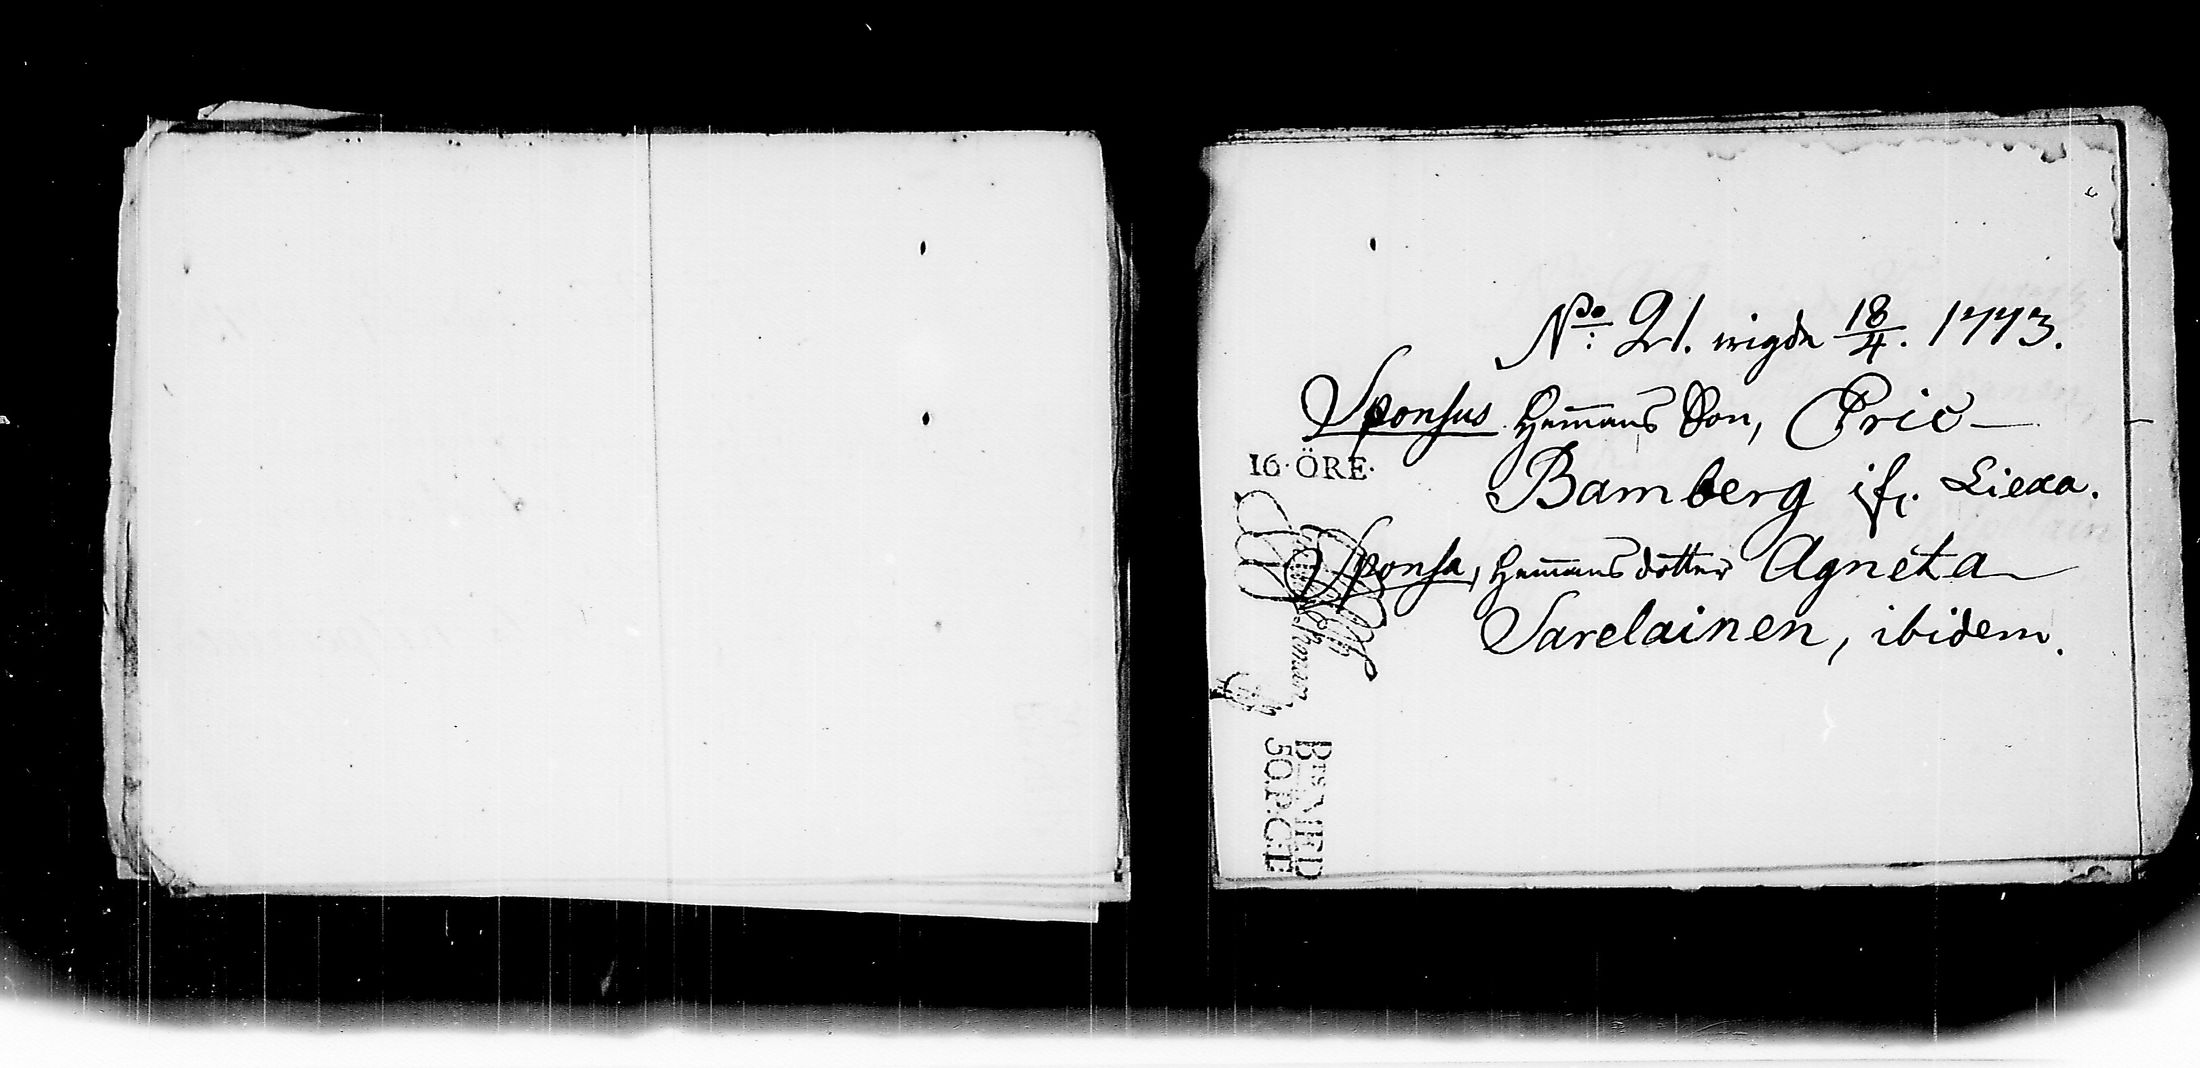 No: 21. vigde 18/4. 1773.
Sponsus Hem̄ans Son, Eric
Bamberg if. Liexa.
Sponsa, Hem̄ans dotter Agneta
Sarelainen, ibidem.
16·ÖRE·
50.P.C:T